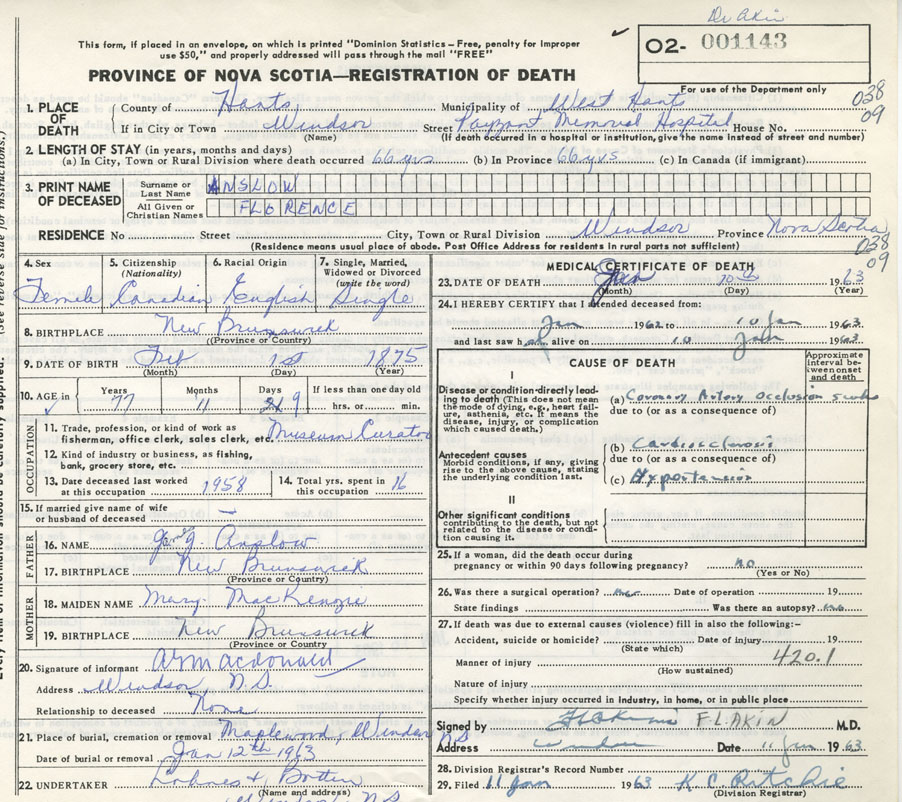 Dr Akin
This form, if placed in an envelope, on which is printed "Dominion Statistics - Free, penalty for improper
use $50," and properly addressed will pass through the mail "FREE"
02- 001143
PROVINCE OF NOVA SCOTIA—REGISTRATION OF DEATH
For use of the Department only
1. PLACE OF DEATH
County of Hants Municipality of West Hants 038
If in City or Town Windsor Street Payzant Memorial Hospital House No. 09
(Name) (If death occurred in a hospital or institution, give the name instead of street and number)
2. LENGTH OF STAY (in years, months and days)
(a) In City, Town or Rural Division where death occurred 66 yrs (b) In Province 66 yrs (c) In Canada (if immigrant)
3. PRINT NAME OF DECEASED
Surname or Last Name ANSLOW
All Given or Christian Names FLORENCE
RESIDENCE No Street City, Town or Rural Division Windsor Province Nova Scotia
(Residence means usual place of abode. Post Office Address for residents in rural parts not sufficient)
038
09
4. Sex 5. Citizenship (Nationality) 6. Racial Origin 7. Single, Married, Widowed or Divorced (write the word)
Female Canadian English Single
8. BIRTHPLACE New Brunswick
(Province or Country)
9. DATE OF BIRTH Feb 1st 1875
(Month) (Day) (Year)
10. AGE in Years Months Days If less than one day old
77 11 9 hrs. or min.
OCCUPATION
11. Trade, profession, or kind of work as
fisherman, office clerk, sales clerk, etc. Museum Curator
12. Kind of industry or business, as fishing,
bank, grocery store, etc.
13. Date deceased last worked at this occupation 1958 14. Total yrs. spent in this occupation 16
15. If married give name of wife
or husband of deceased —
FATHER
16. NAME Anslow
17. BIRTHPLACE New Brunswick
(Province or Country)
MOTHER
18. MAIDEN NAME Mary MacKenzie
19. BIRTHPLACE New Brunswick
(Province or Country)
20. Signature of informant A R Macdonald
Address Windsor, N.S.
Relationship to deceased None
21. Place of burial, cremation or removal Maplewood, Windsor N.S.
Date of burial or removal Jan 12th 1963
22. UNDERTAKER
(Name and address)
Windsor N.S.
MEDICAL CERTIFICATE OF DEATH
23. DATE OF DEATH Jan 10th 1963
(Month) (Day) (Year)
24. I HEREBY CERTIFY that I attended deceased from:
Jan 1962 to 10 Jan 1963
and last saw h alive on 10 Jan 1963
CAUSE OF DEATH
Approximate interval between onset and death
I
Disease or condition directly leading to death (This does not mean the mode of dying, e.g., heart failure, asthenia, etc. It means the disease, injury, or complication which caused death.)
(a) Coronary Artery Occlusion
due to (or as a consequence of)
Antecedent causes
Morbid conditions, if any, giving rise to the above cause, stating the underlying condition last.
(b) Cardiosclerosis
due to (or as a consequence of)
(c) Hypertension
II
Other significant conditions
contributing to the death, but not related to the disease or condition causing it.
25. If a woman, did the death occur during
pregnancy or within 90 days following pregnancy? no
(Yes or No)
26. Was there a surgical operation? Date of operation 19
State findings Was there an autopsy?
27. If death was due to external causes (violence) fill in also the following:-
Accident, suicide or homicide? Date of injury 19
(State which)
420.1
Manner of injury
(How sustained)
Nature of injury
Specify whether injury occurred in industry, in home, or in public place
Signed by F L Akin F.L. AKIN M.D.
Address Windsor Date 11 Jan 1963
28. Division Registrar's Record Number
29. Filed 11 Jan 1963 K C Ritchie
(Division Registrar)